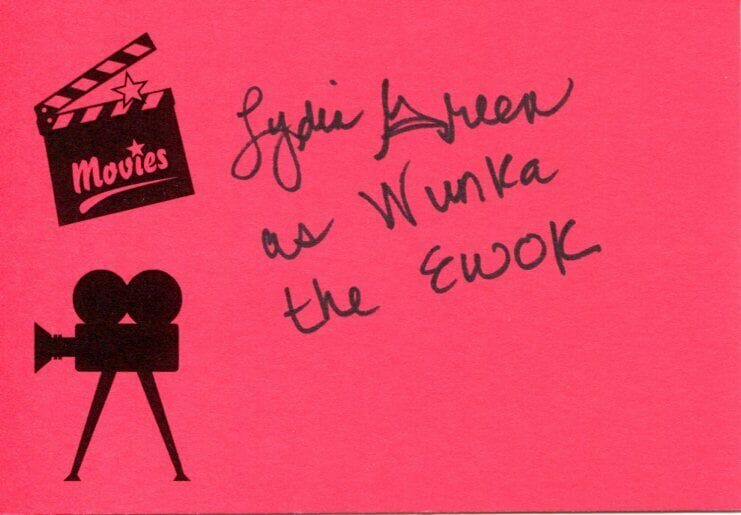 Movies
Lydia Green
as Wunka
the Ewok